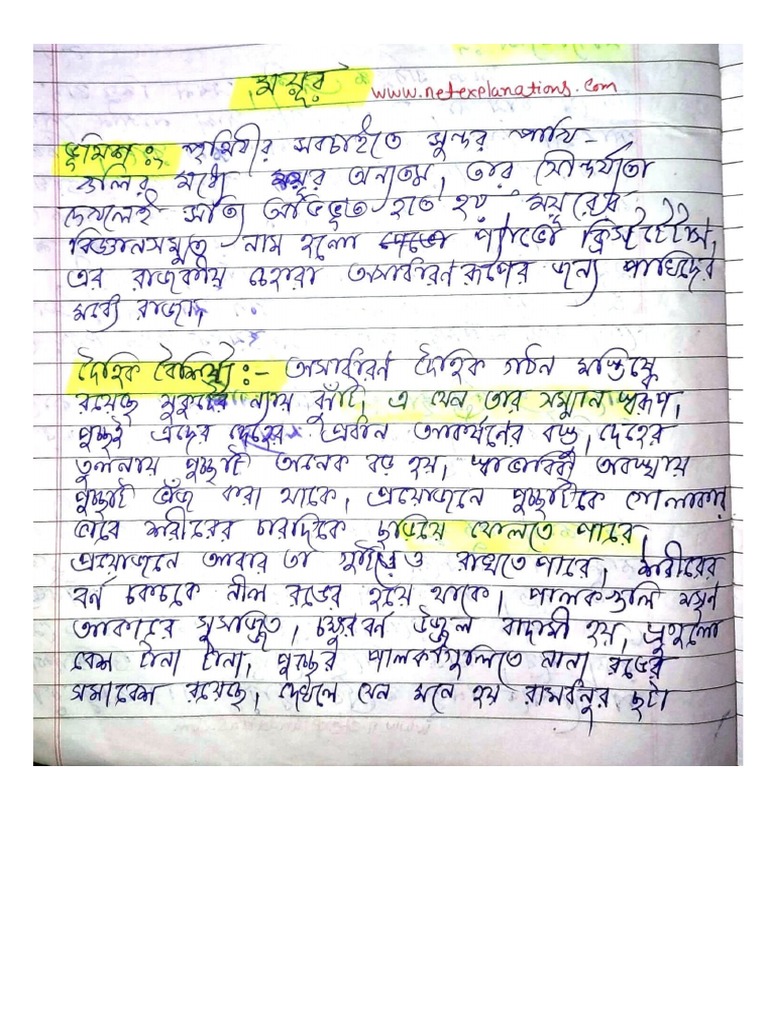 ময়ূর www.netexplanations.com
ভূমিকা :- পৃথিবীর সবচাইতে সুন্দর পাখি-
গুলির মধ্যে ময়ূর অন্যতম, তার সৌন্দর্যতা
দেখলেই সত্যি অভিভূত হতে হয়, ময়ূরের
বিজ্ঞানসম্মত নাম হলো প্যাভো ক্রিস্টেটাস,
এর রাজকীয় চেহারা অসাধারন রূপের জন্য পাখিদের
মধ্যে রাজা,
দৈহিক বৈশিষ্ট্য :- অসাধারন দৈহিক গঠন মস্তিষ্কে
রয়েছে মুকুটের ন্যায় ঝুঁটি, এ যেন তার সম্মান স্বরূপ,
পুচ্ছই এদের দেহের প্রধান আকর্ষনের বস্তু, দেহের
তুলনায় পুচ্ছটি অনেক বড় হয়, স্বাভাবিক অবস্থায়
পুচ্ছটি ভাঁজ করা থাকে, প্রয়োজনে পুচ্ছটিকে গোলাকার
ভাবে শরীরের চারদিকে ছড়িয়ে ফেলতে পারে,
প্রয়োজনে আবার তা গুটিয়েও রাখতে পারে, শরীরের
বর্ন চকচকে নীল রঙের হয়ে থাকে, পালকগুলি মসৃন
আকারে সুসজ্জিত, চক্ষুর বর্ন উজ্জ্বল বাদামী হয়, ভ্রুগুলো
বেশ টানা টানা, পুচ্ছের পালকগুলিতে নানা রঙের
সমাবেশ রয়েছে, দেখলে যেন মনে হয় রামধনুর ছটা